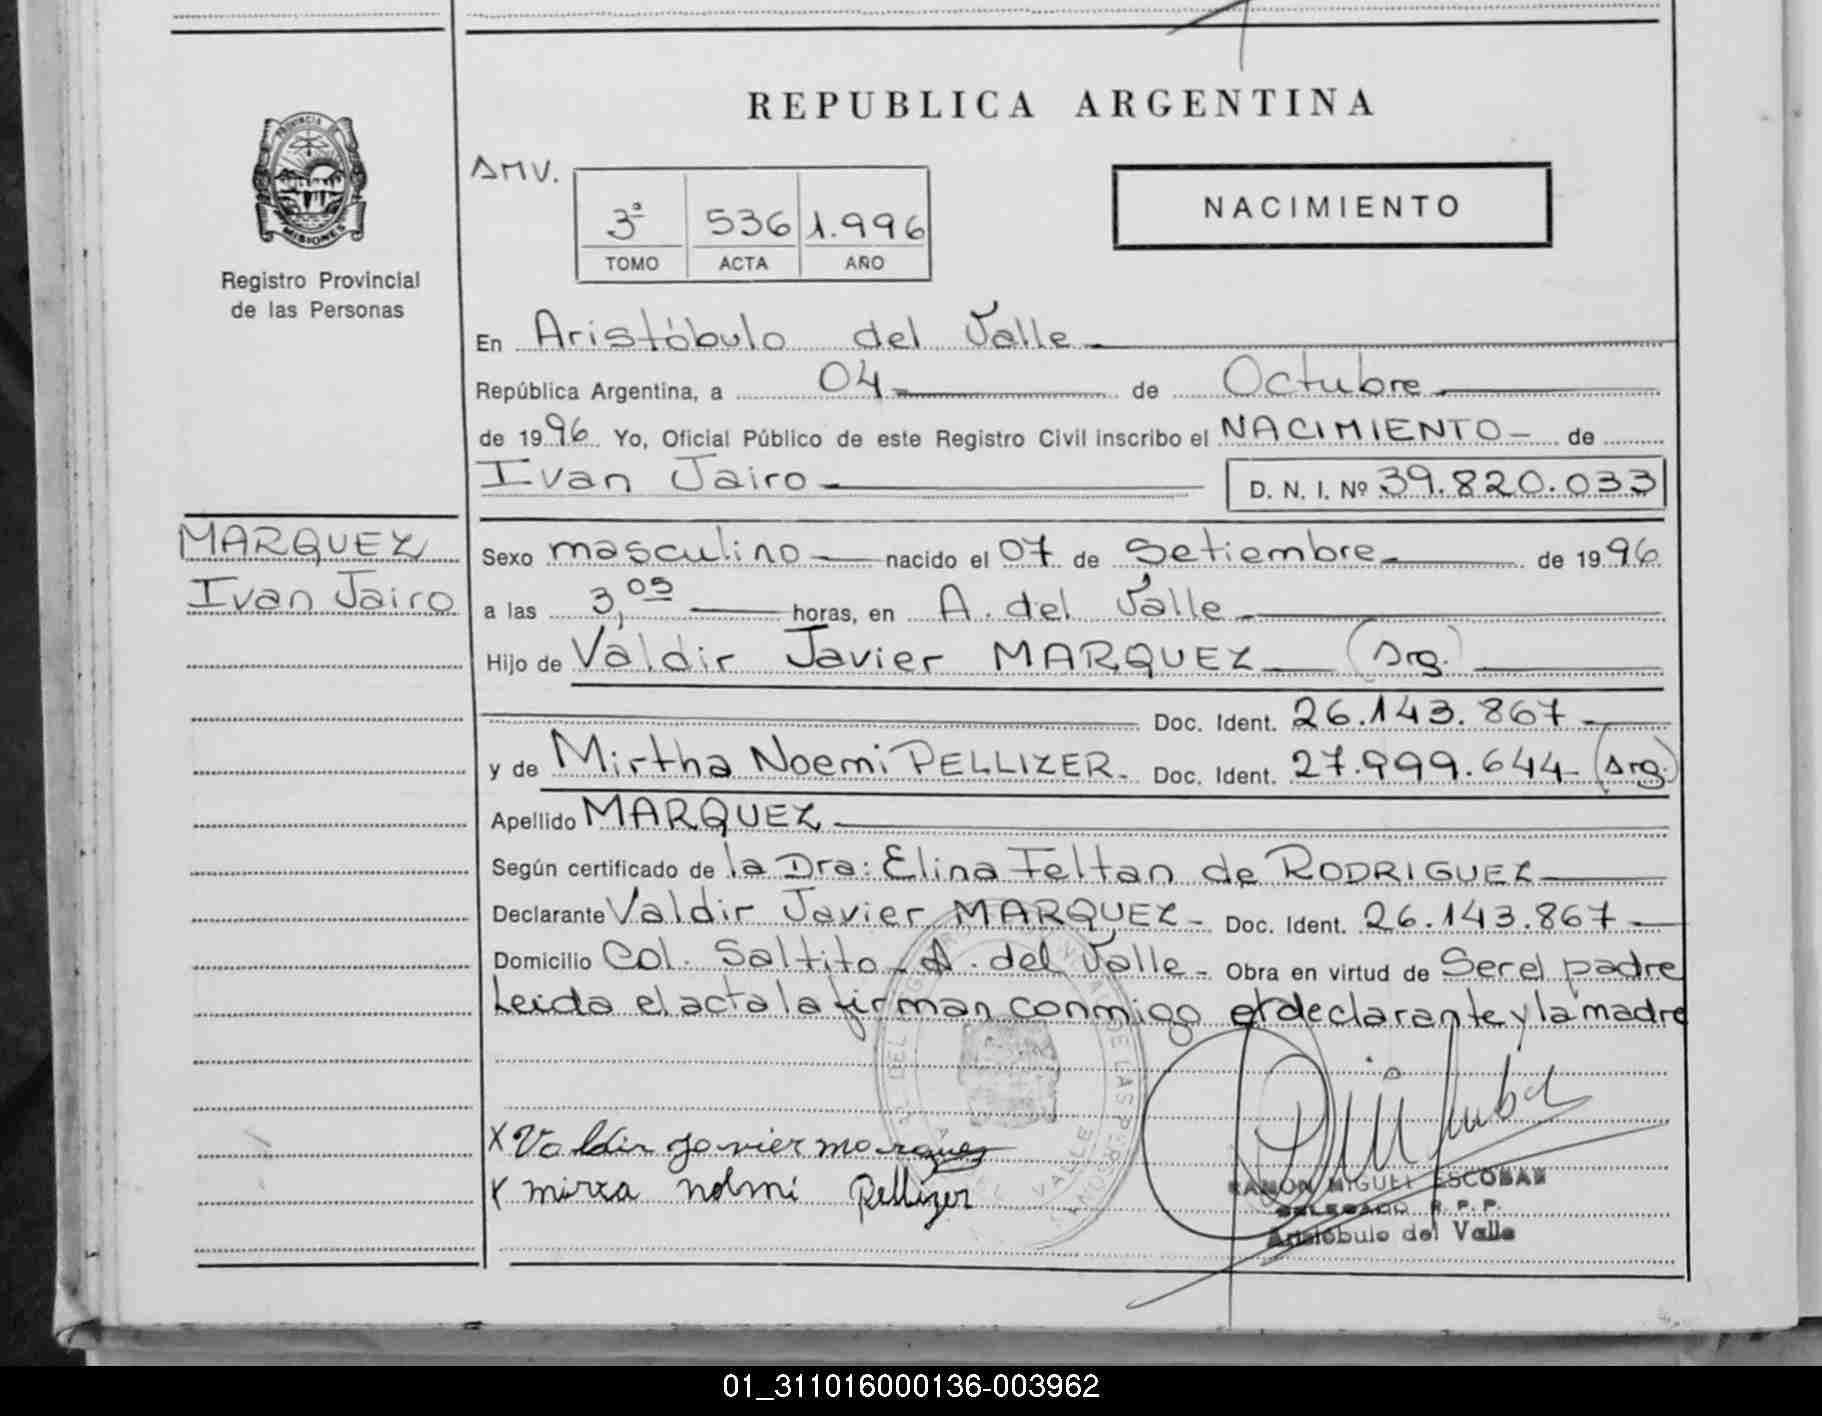 REPUBLICA ARGENTINA
PROVINCIA DE
MISIONES
Registro Provincial
de las Personas
AMV.
3ª 536 1.996
TOMO ACTA AÑO
NACIMIENTO
En Aristóbulo del Valle
República Argentina, a 04 de Octubre
de 1996 Yo, Oficial Público de este Registro Civil inscribo el NACIMIENTO de
Ivan Jairo D. N. I. Nº 39.820.033
MARQUEZ
Ivan Jairo
Sexo masculino nacido el 07 de Setiembre de 1996
a las 3,05 horas, en A. del Valle
Hijo de Valdir Javier MARQUEZ (Arg.)
Doc. Ident. 26.143.867
y de Mirtha Noemi PELLIZER Doc. Ident. 27.999.644 (Arg.)
Apellido MARQUEZ
Según certificado de la Dra: Elina Feltan de RODRIGUEZ
Declarante Valdir Javier MARQUEZ Doc. Ident. 26.143.867
Domicilio Col. Saltito - A. del Valle Obra en virtud de Ser el padre
Leida el acta la firman conmigo el declarante y la madre
X Valdir Javier Marquez
X mirta nolmi Pellizer
RAMON MIGUEL ESCOBAR
DELEGADO R. P. P.
Aristóbulo del Valle
01_311016000136-003962